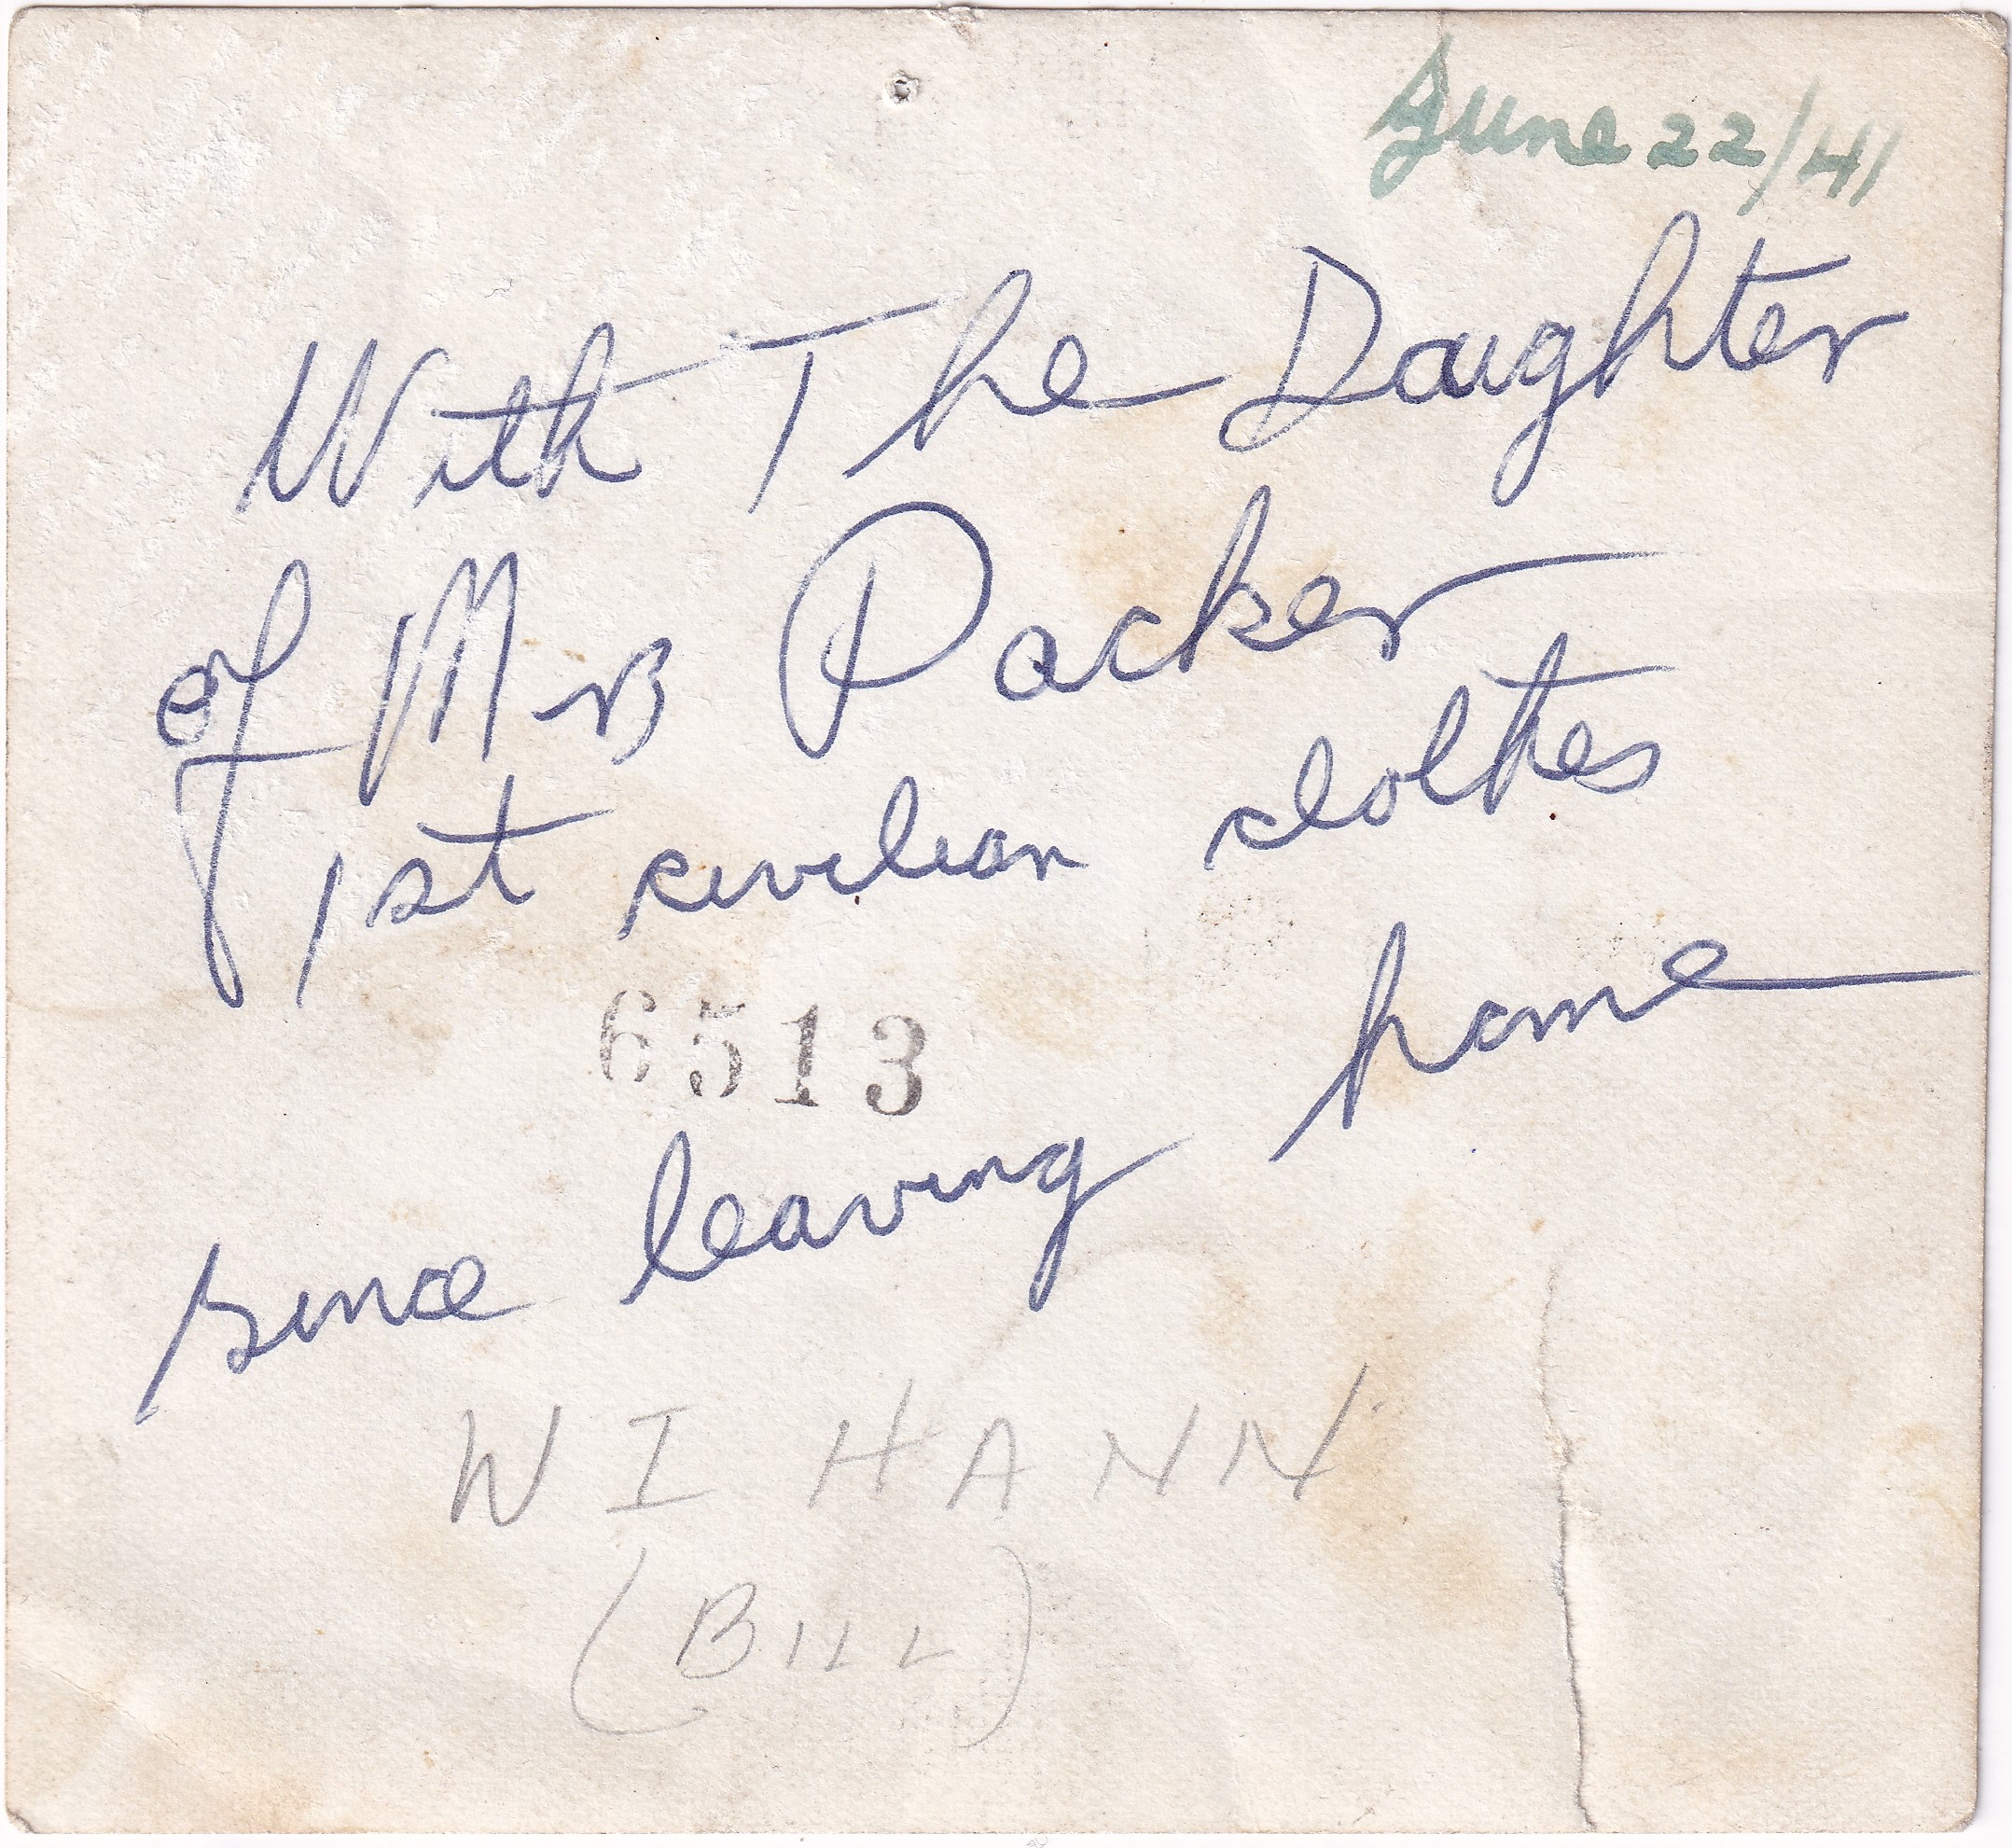 June 22/41
With The Daughter
of Mrs Packer
1st civilian clothes
6513
since leaving home
W I HANN
(BILL)